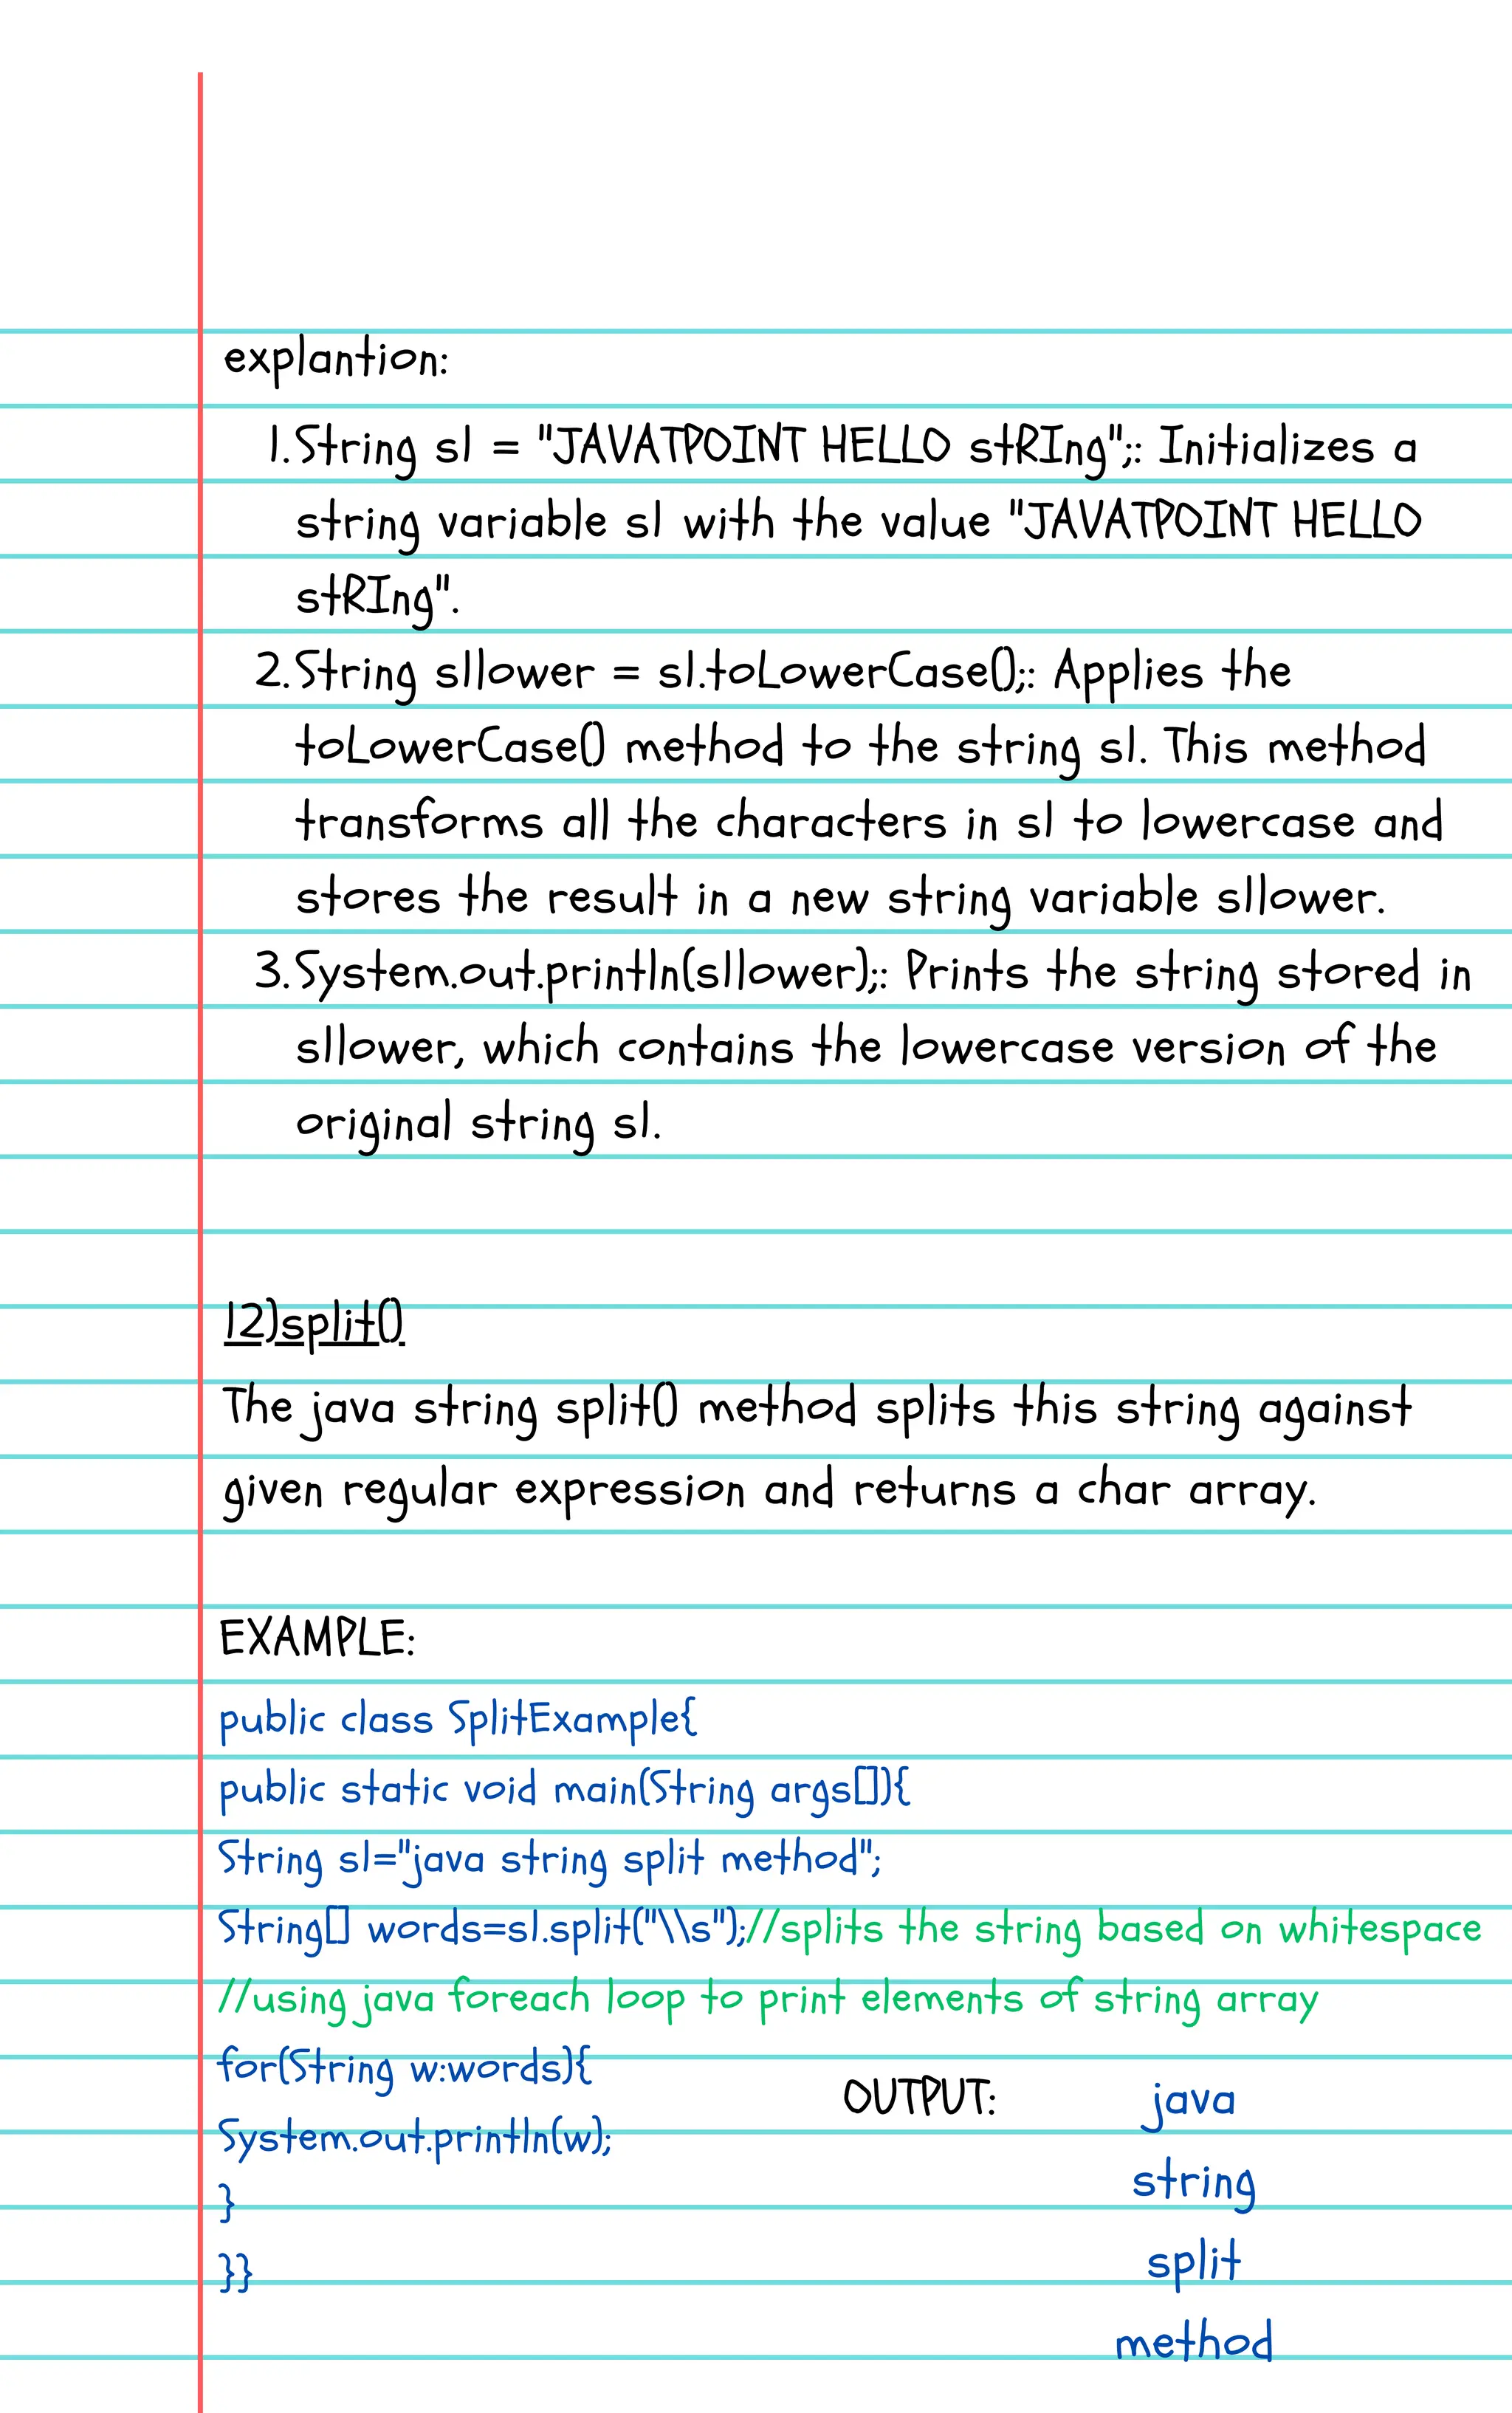 explantion:
1.String s1 = "JAVATPOINT HELLO stRIng";: Initializes a
string variable s1 with the value "JAVATPOINT HELLO
stRIng".
2.String s1lower = s1.toLowerCase();: Applies the
toLowerCase() method to the string s1. This method
transforms all the characters in s1 to lowercase and
stores the result in a new string variable s1lower.
3.System.out.println(s1lower);: Prints the string stored in
s1lower, which contains the lowercase version of the
original string s1.
12)split()
The java string split() method splits this string against
given regular expression and returns a char array.
EXAMPLE:
public class SplitExample{
public static void main(String args[]){
String s1="java string split method";
String[] words=s1.split("\\s");//splits the string based on whitespace
//using java foreach loop to print elements of string array
for(String w:words){
System.out.println(w);
}
}}
OUTPUT:
java
string
split
method